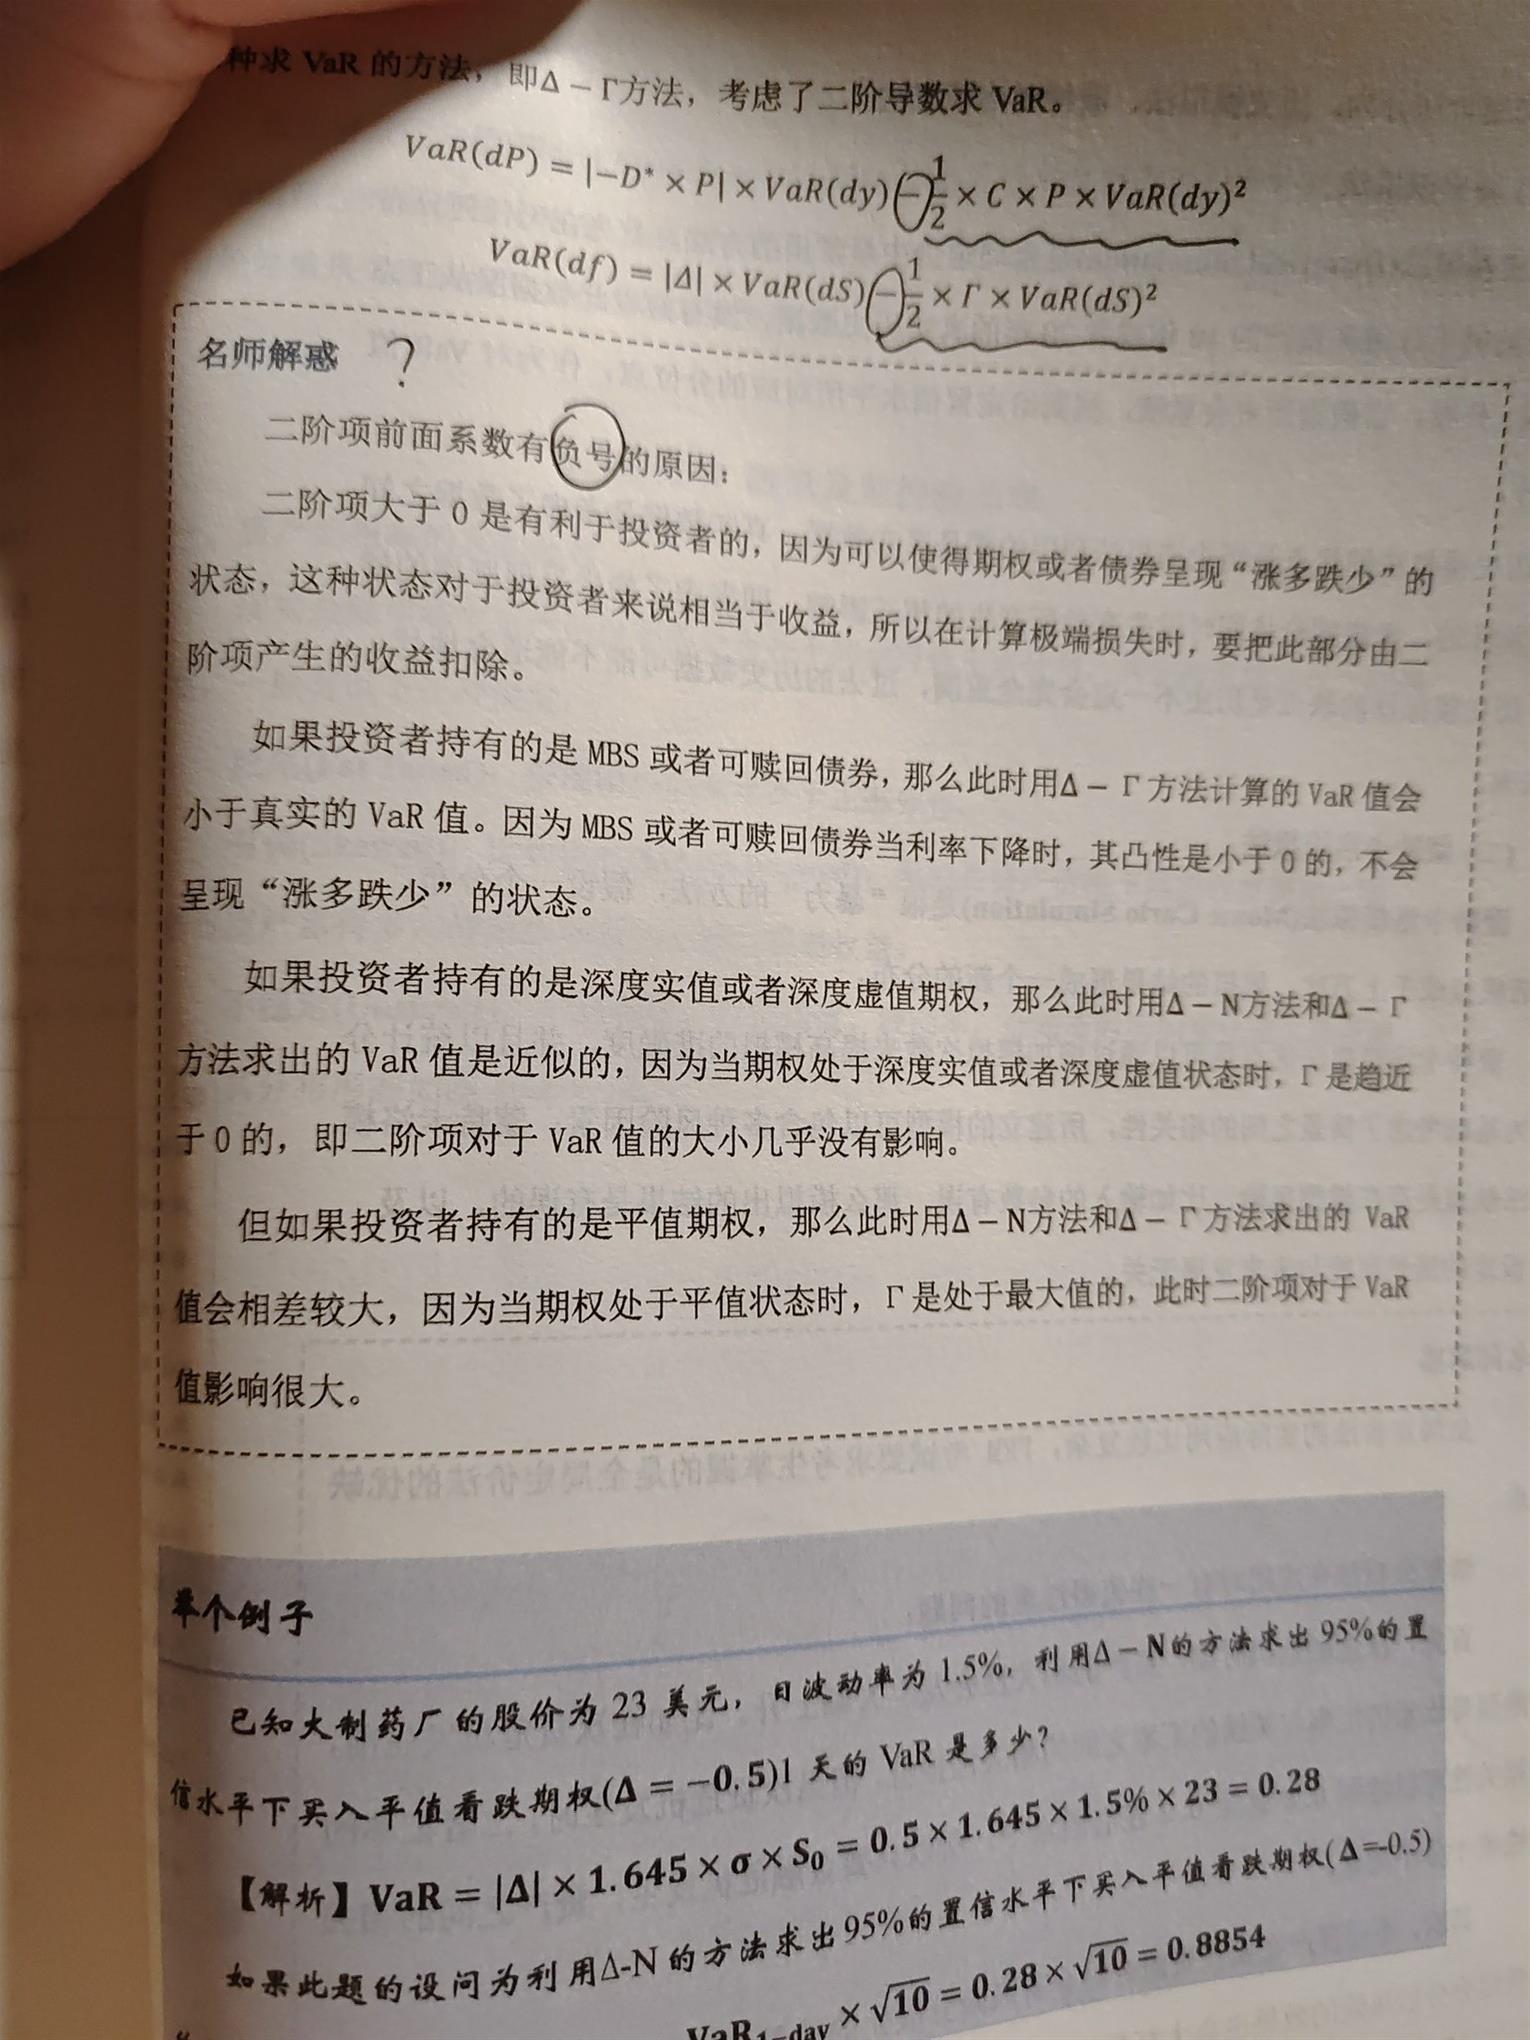 种求 VaR 的方法，即Δ－Γ方法，考虑了二阶导数求 VaR。
VaR(dP) = |−D* × P| × VaR(dy) − 1/2 × C × P × VaR(dy)²
VaR(df) = |Δ| × VaR(dS) − 1/2 × Γ × VaR(dS)²
名师解惑 ?
二阶项前面系数有负号的原因：
二阶项大于 0 是有利于投资者的，因为可以使得期权或者债券呈现“涨多跌少”的
状态，这种状态对于投资者来说相当于收益，所以在计算极端损失时，要把此部分由二
阶项产生的收益扣除。
如果投资者持有的是 MBS 或者可赎回债券，那么此时用Δ－Γ方法计算的 VaR 值会
小于真实的 VaR 值。因为 MBS 或者可赎回债券当利率下降时，其凸性是小于 0 的，不会
呈现“涨多跌少”的状态。
如果投资者持有的是深度实值或者深度虚值期权，那么此时用Δ－N方法和Δ－Γ
方法求出的 VaR 值是近似的，因为当期权处于深度实值或者深度虚值状态时，Γ是趋近
于 0 的，即二阶项对于 VaR 值的大小几乎没有影响。
但如果投资者持有的是平值期权，那么此时用Δ－N方法和Δ－Γ方法求出的 VaR
值会相差较大，因为当期权处于平值状态时，Γ是处于最大值的，此时二阶项对于 VaR
值影响很大。
举个例子
已知大制药厂的股价为 23 美元，日波动率为 1.5%，利用Δ－N的方法求出 95%的置
信水平下买入平值看跌期权(Δ = −0.5)1 天的 VaR 是多少？
【解析】VaR = |Δ| × 1.645 × σ × S₀ = 0.5 × 1.645 × 1.5% × 23 = 0.28
如果此题的设问为利用Δ-N 的方法求出 95%的置信水平下买入平值看跌期权(Δ=-0.5)
VaR₁₋day × √10 = 0.28 × √10 = 0.8854